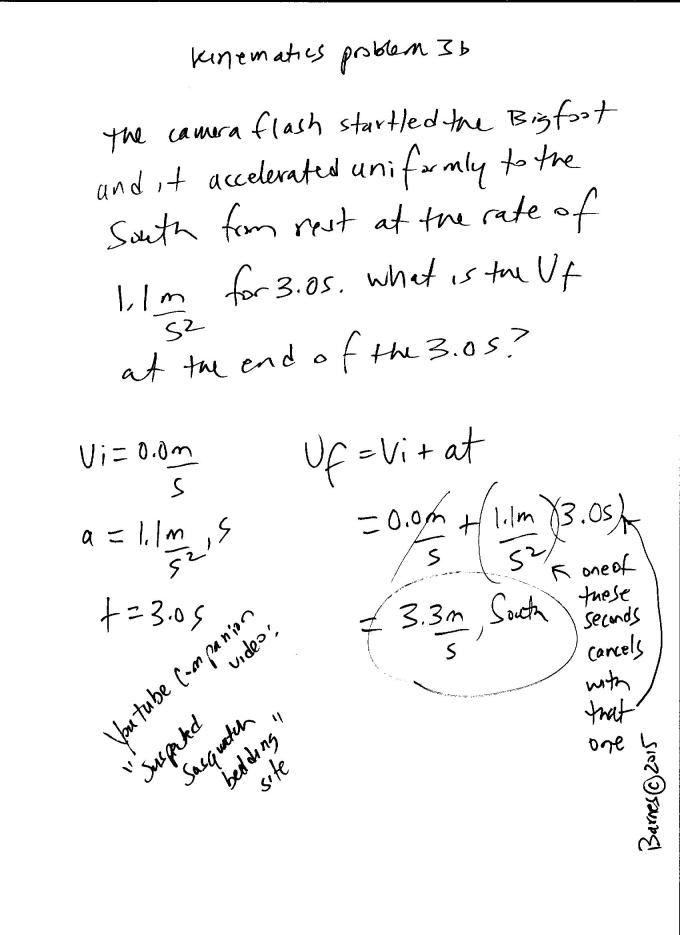 Kinematics problem 3b
The camera flash startled the Bigfoot
and it accelerated uniformly to the
South from rest at the rate of
1.1 m/s² for 3.0s. What is the Vf
at the end of the 3.0s?
Vi = 0.0 m/s
a = 1.1 m/s², S
t = 3.0s
Youtube Companion
video:
"Suspected
Sasquatch
bedding"
site
Vf = Vi + at
= 0.0 m/s + (1.1 m/s²)(3.0s)
= 3.3 m/s, South
one of
these
seconds
cancels
with
that
one
Barnes © 2015